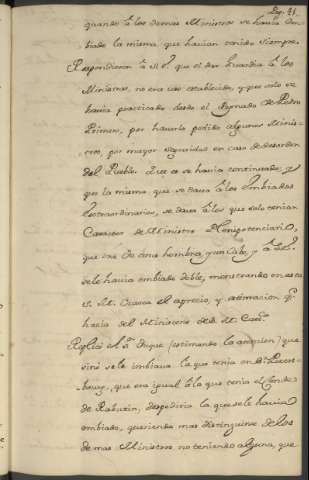 Pag. 41.
quando à los demas Ministros se havia em-
biado la misma, que havian tenido siempre.
Respondieron à S. E. que el dar Guardia à los
Ministros, no era cosa establecida, y que solo se
havia practicado desde el Reynado de Pedro
Primero, por haverla pedido algunos Minis-
tros, por mayor seguridad en caso de desorden
del Pueblo. Que se havia continuado; y
que la misma, que se dava à los Embiados
Extraordinarios, se dava à los que solo tenian
Caracter de Ministro Plenipotenciario,
que era de seis hombres, y un Cabo, y à S. E.
se le havia embiado doble, mostrando en esto
S. M. Czarea el aprecio, y estimacion q.e
hacia del Ministerio de S. M. Cat.ca
Replicò el S.r Duque (estimando la atencion) que
sino se le embiava la que tenia en Petters-
bourg, que era igual à la que tenia el Conde
de Rabutin, despediria la que se le havia
embiado, queriendo mas distinguirse de los
demas Ministros no teniendo alguna, que